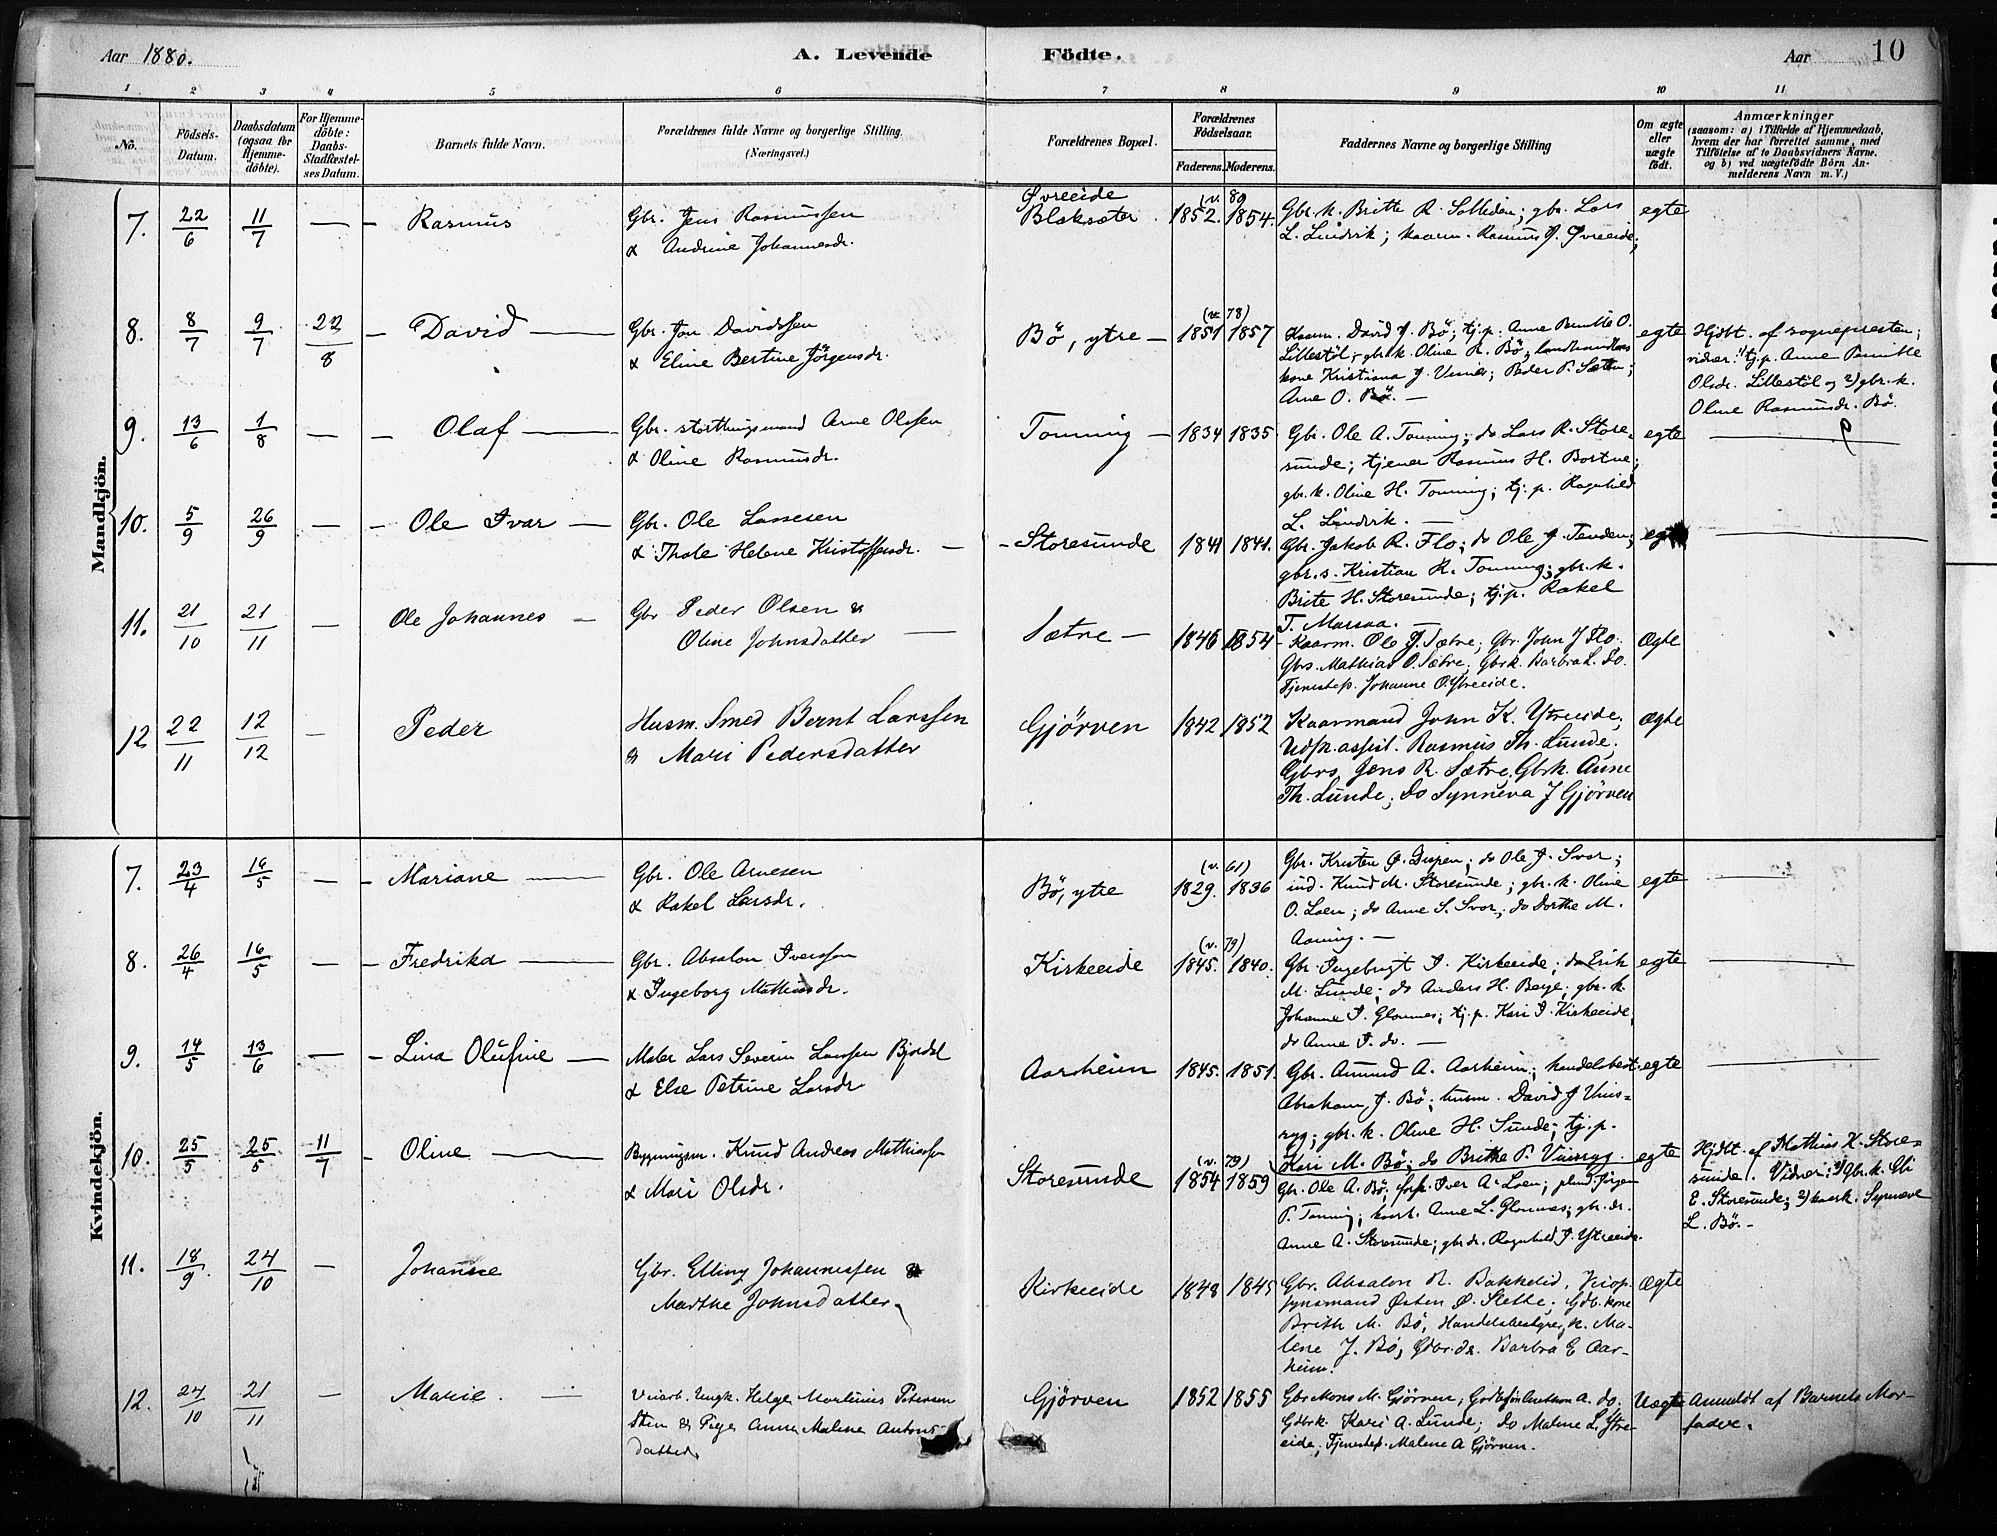 Aar 1880.
A. Levende
Födte.
Aar
10
1 2 3 4 5 6 7 8 9 10 11
No.
Födsels-Datum.
Daabsdatum (ogsaa for Hjemmedöbte).
For Hjemmedöbte: Daabs-Stadfæstelses Datum.
Barnets fulde Navn.
Forældrenes fulde Navne og borgerlige Stilling. (Næringsvei.)
Forældrenes Bopæl.
Forældrenes Födselsaar.
Faderens. Moderens.
Faddernes Navne og borgerlige Stilling
Om ægte eller uægte födt.
Anmærkninger
(saasom: a) i Tilfælde af Hjemmedaab, hvem der har forrettet samme, med Tilföielse af to Daabsvidners Navne. og b) ved uægtefödte Börn Anmelderens Navn m. V.)
Mandkjön.
7. 22/6 11/7 — Rasmus
Gbr. Jens Rasmussen
& Andrine Johannesdr.
Øvreeide
Blaksæter.
(v. 80
1852. 1854.
Gbr. k. Britte R. Solheim; gbr. Lars
L. Lindvik; kaarm. Rasmus J. Øvreeide;
egte
8. 8/7 9/7 22/8 — David —
Gbr. Jon Davidssen
& Eline Bertine Jörgensdr.
Bö, ytre —
(v. 78)
1851 1857
Kaarm. David J. Bö; tj. p. Anne Pernille O.
Lillestöl; gbr. k. Oline R. Bö; landhandlers
kone Kristiana J. Visnes; Peder P. Sætre;
Arne O. Bö. —
egte
Hjdbt. af sognepresten;
vidner: 1) tj. p. Anne Pernille
Olsdr. Lillestöl og 2) gbr. k.
Oline Rasmusdr. Bö.
9. 13/6 1/8 — — Olaf —
Gbr. storthingsmand Arne Olsen
& Oline Rasmusdr.
Tonning —
1834 1835
Gbr. Ole A. Tonning; do Lars R. Store-
sunde; tjener Rasmus H. Bortne;
gbr. k. Oline H. Tonning; tj. p. Ragnhild
L. Lindvik. —
egte
10. 5/9 26/9 — — Ole Ivar —
Gbr. Ole Lassesen
& Thale Helene Kristoffersdr. —
Storesunde
1841 1841.
Gbr. Jakob R. Flo; do Ole J. Tenden;
gbr. s. Kristian R. Tonning; gbr. k.
Brite H. Storesunde; tj. p. Rakel
T. Marsaa. —
egte
11. 21/10 21/11 — Ole Johannes —
Gbr Peder Olsen &
Oline Johnsdatter —
Sætre —
1846 1854
Kaarm. Ole J. Sætre, Gbr. John J Flo.
Gbrs. Mathias O. Sætre, Gbrk. Barbra L. Do.
Tjenestep. Johanne O. Ytreeide.
Ægte
12 22/11 12/12 — Peder
Husm. Smed Bernt Larssen
& Mari Pedersdatter
Gjörven
1842 1852
Kaarmand John K. Ytreeide,
Udskr. assist. Rasmus Th. Lunde,
Gbrs. Jens R. Sætre, Gbrk. Anne
Th. Lunde, Do Synneva J Gjörven
Ægte
Kvindekjön.
7. 23/4 16/5 — — Mariane —
Gbr. Ole Arnesen
& Rakel Larsdr.
Bö, ytre
(v. 61)
1829. 1836
Gbr. Kristen O. Dispen; do Ole J. Svor;
ind. Knud M. Storesunde; gbr. k. Oline
O. Loen; do Anne S. Svor; do Dorthe M.
Aaning. —
egte
8. 26/4 16/5 — — Fredrika —
Gbr. Absalon Iverssen
& Ingeborg Mathiasdr.
Kirkeeide
(v. 79)
1845. 1840.
Gbr. Ingebrigt I. Kirkeeide; do Erik
M. Lunde; do Anders H. Berge; gbr. k.
Johanne I. Glomnes; tj. p. Kari I. Kirkeeide,
do Anne I. do. —
egte
9. 14/5 13/6 — — Lina Olufine —
Maler Lars Severin Larssen Bjordal
& Else Petrine Larsdr
Aarheim
1845. 1851.
Gbr. Amund A. Aarheim; handelsbest.
Abraham J. Bö; husm. David J Vins-
ryg; gbr. k. Oline H. Sunde; tj. p.
Kari M. Bö; do Brithe P. Vinsryg.
egte
10. 25/5 25/5 11/7 Oline —
Bygningsm. Knud Andreas Mathiassen
& Mari Olsdr.
Storesunde
(v. 79)
1854 1859
Gbr. Ole A. Bö; Iver A. Loen; Jörgen
P. Tonning; kaark. Anne L. Glomnes; gbr. dr.
Anne A. Storesunde; gbr. dr. Ragnhild I. Ytreeide.
egte
Hjdbt. af Mathias K. Store-
sunde. Vidner: 1) Gbr. k. Eli
E. Storesunde; 2) kaark. Synneve
L. Bö. —
11. 18/9. 24/10 — Johanne
Gbr. Elling Johannessen &
Marthe Johnsdatter
Kirkeeide
1848 1845
Gbr. Absalon R. Bakkelid, Veiop-
synsmand Østen Ø. Slethe; Gdb. kone
Brith M. Bö, Handelsbestyrer k. Ma-
lene J. Bö, Gbr. dr. Barbra E Aar-
heim.
Ægte
12. 24/10 21/11 — Marie. —
Veiarb. Ungk. Helge Martinus Petersen
Sten & Pige Anne Malene Antons-
datter
Gjörven
1852 1855
Gbr Mons M. Gjörven, Anthon A. do.
Gdbrk. Kari A. Lunde; Do Malene L. Ytre-
eide, Tjenestep. Malene A Gjörven.
Uægte
Anmeldt af Barnets Mor-
fader.